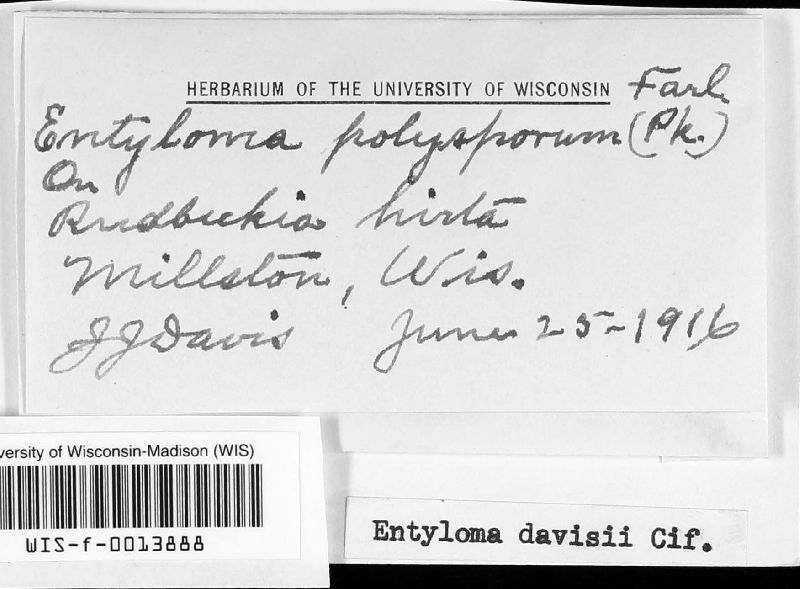 HERBARIUM OF THE UNIVERSITY OF WISCONSIN Farl.
Entyloma polysporum (Pk.)
On
Rudbeckia hirta
Millston, Wis.
JJDavis June 25-1916
versity of Wisconsin-Madison (WIS)
WIS-f-0013888
Entyloma davisii Cif.